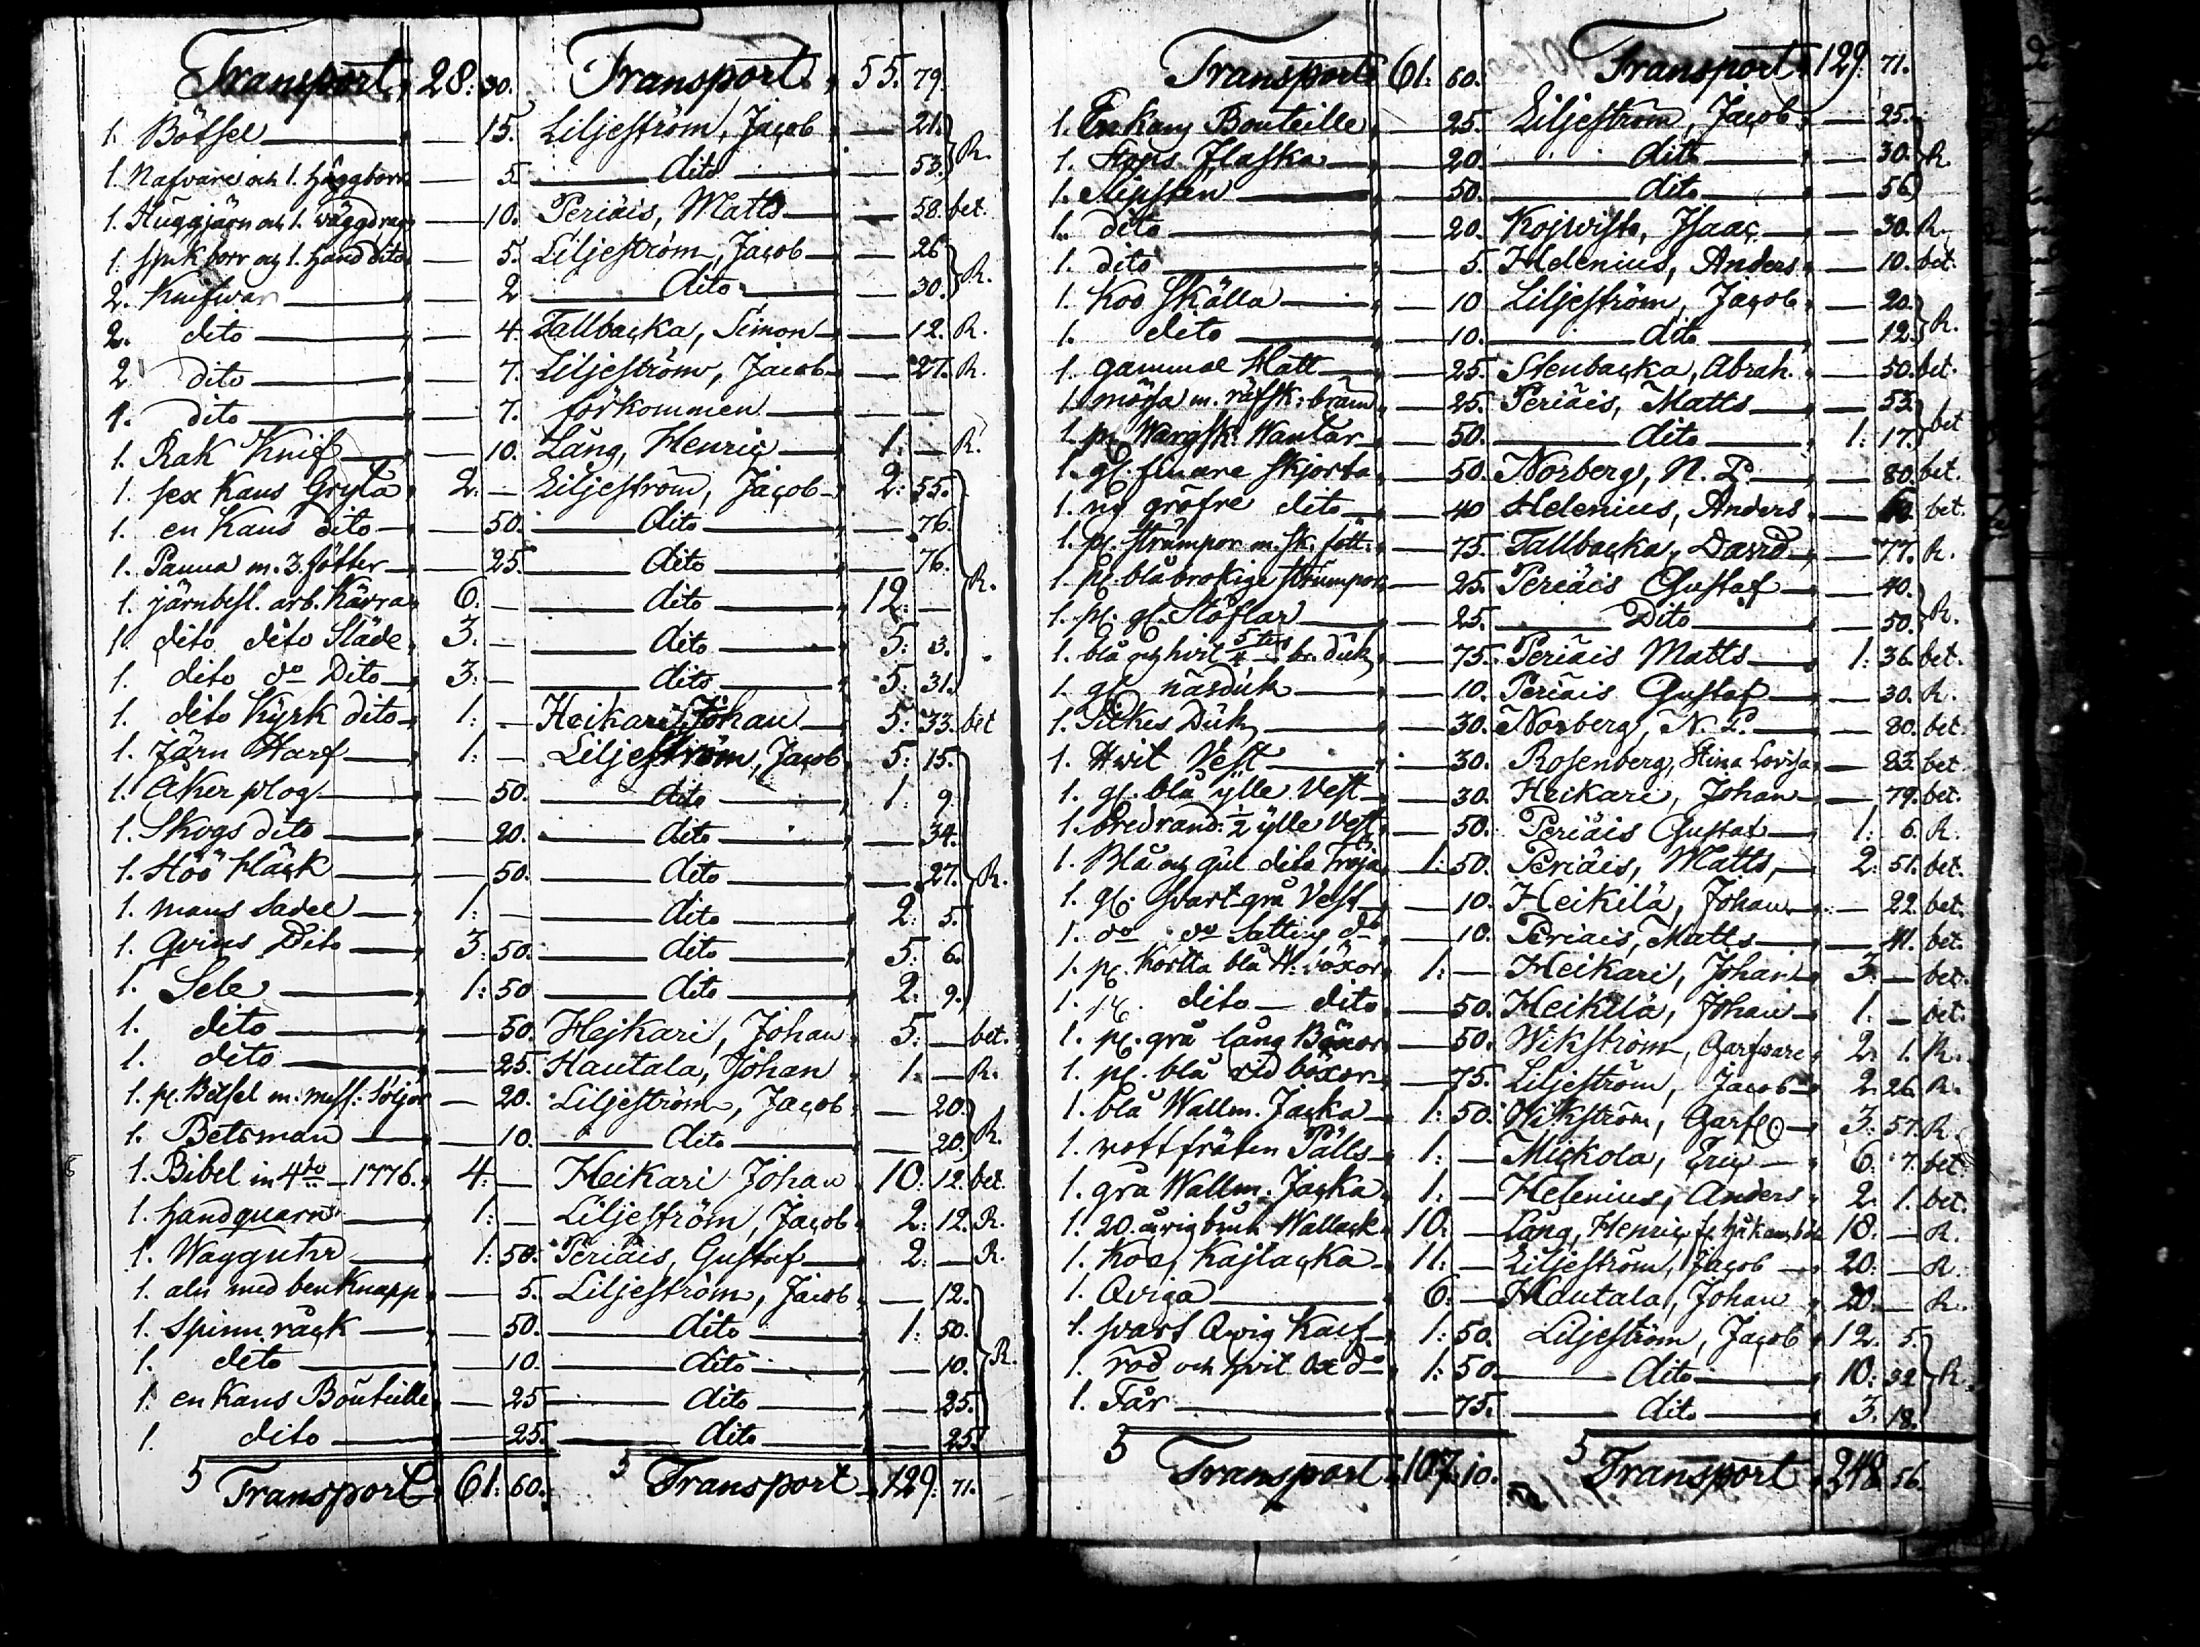 Transport 28: 30. Transport 55. 79.
1. Bötsel — 15. Liljeström, Jacob — 21.
1. Nafvare och 1. huggborr — 5. dito — 53. R.
1. Huggjärn och 1. väggdrag — 10. Periäis, Matts — 58. bet.
1. borr och 1. hand dito — 5. Liljeström, Jacob — 26
2. Knifwar — 2 dito — 30. R.
2. dito — 4. Tallbacka, Simon — 12. R.
2 dito — 7. Liljeström, Jacob — 27. R.
1. dito — 7. förkommen — —
1. Rak Knif — 10. Lång, Henric 1: — R.
1. sex Kans Gryta 2: — Liljeström, Jacob 2: 55.
1. en Kans dito — 50. dito — 76.
1. Panna m. 3. fötter — 25. dito — 76.
1. järnbesl. arb. Kärra 6: — dito 12: — R.
1. dito dito Släde 3. — dito 5: 3.
1. dito do Dito 3: — dito 5: 31.
1. dito Kyrk dito 1: — Heikari, Johan 5: 33. bet
1. Järn Harf 1: — Liljeström, Jacob 5: 15.
1. Åker plog — 50. dito 1: 9.
1. Skogs dito — 20. dito — 34.
1. Höö häck — 50. dito — 27. R.
1. mans Sadel 1: — dito 2: 5.
1. Qvins Dito 3: 50. dito 5: 6.
1. Sele 1: 50 dito 2: 9.
1. dito — 50. Hejkari, Johan 5: — bet.
1. dito — 25. Hautala, Johan 1. — R.
1. pr. Betsel m: mess: Söljor — 20. Liljeström, Jacob — 20.
1. Betsman — 10. dito — 20. R.
1. Bibel in 4to — 1776. 4: — Heikari Johan 10: 12. bet.
1. handquarn 1: — Liljeström, Jacob 2: 12. R.
1. Wägguhr 1: 50. Periäis, Gustaf 2: — R.
1. aln med ben Knapp — 5. Liljeström, Jacob — 12.
1. Spinn råck — 50. dito 1: 50.
1. dito — 10. dito — 10. R.
1. en Kans Bouteille — 25 dito — 25.
1. dito — 25. dito — 25.
S Transport 61: 60. S Transport 129: 71.
Transport 61: 60. Transport 129: 71.
1. En kans Bouteille — 25. Liljeström, Jacob — 25.
1. Stops Flaska — 20. dito — 30. R.
1. Slipsten — 50. dito — 56.
1. dito — 20. Kojwisto, Isaac — 30. R.
1. dito — 5. Helenius, Anders — 10. bet.
1. Koo Skälla — 10 Liljeström, Jacob — 20.
1. dito — 10. dito — 12. R.
1. gammal Hatt — 25. Stenbacka, Abrah. — 50. bet.
1. mössa m. räfsk: bräm — 25. Periäis, Matts — 53.
1. pr. Wargsk: Wantar — 50. dito 1: 17. bet
1. gl. finare skjorta — 50. Norberg, N. P. — 80. bet.
1. ny gröfre dito — 40 Helenius, Anders — bet.
1. pr. strumpor m. sk. fött: — 75. Tallbacka, David — 77. R.
1. pr. blåbrokige strumpor — 25. Periäis Gustaf — 40.
1. pr. gl. Stöflar — 25. Dito — 50. R.
1. blå och hvit 5/4 ters br. duk — 75. Periäis Matts 1: 36. bet.
1. gl. näsduk — 10. Periäis Gustaf — 30. R.
1. Silkes Duk — 30. Norberg, N. P. — 80. bet.
1. Hvit Vest — 30. Rosenberg, Stina Lovisa — 83. bet
1. gl. blå ylle Vest — 30. Heikari, Johan — 79. bet.
1. bredrand: 1/2 ylle Vest — 50. Periäis Gustaf 1: 6. R.
1. Blå och gul dito Tröja 1: 50. Periäis, Matts, 2: 51. bet.
1. gl. svart grå Vest — 10. Heikilä, Johan — 22. bet.
1. do do Satting do — 10. Periäis, Matts — 41. bet.
1. pr. Kortta blå böxor 1: — Heikari, Johan 3. — bet.
1. pr. dito — dito — 50. Heikilä, Johan 1. — bet.
1. pr. grå lång Böxor — 50. Wikström, Garfvare 2: 1. R.
1. pr. blå rid böxor — 75. Liljeström, Jacob 2. 26. R.
1. blå Wallm. Jacka 1: 50. Wikström, Garf 3: 57. R.
1. rottfräten Pälls 1: — Mickola, Eric 6: 7. bet
1. grå Wallm. Jacka 1: — Helenius, Anders 2. 1. bet.
1. 20. årig brun Wallack 10. — Lång, Henric 18. — R.
1. Koo, Kajlacka 11: — Liljeström, Jacob 20: — R.
1. Qviga 6: — Hautala, Johan 20. — R.
1. svart Qvig Kalf 1: 50. Liljeström, Jacob 12. 5.
1. röd och hvit Ox do 1: 50. dito 10: 32 R.
1. Får — 75. dito 3. 18.
S Transport 107. 10. S Transport 248. 56.